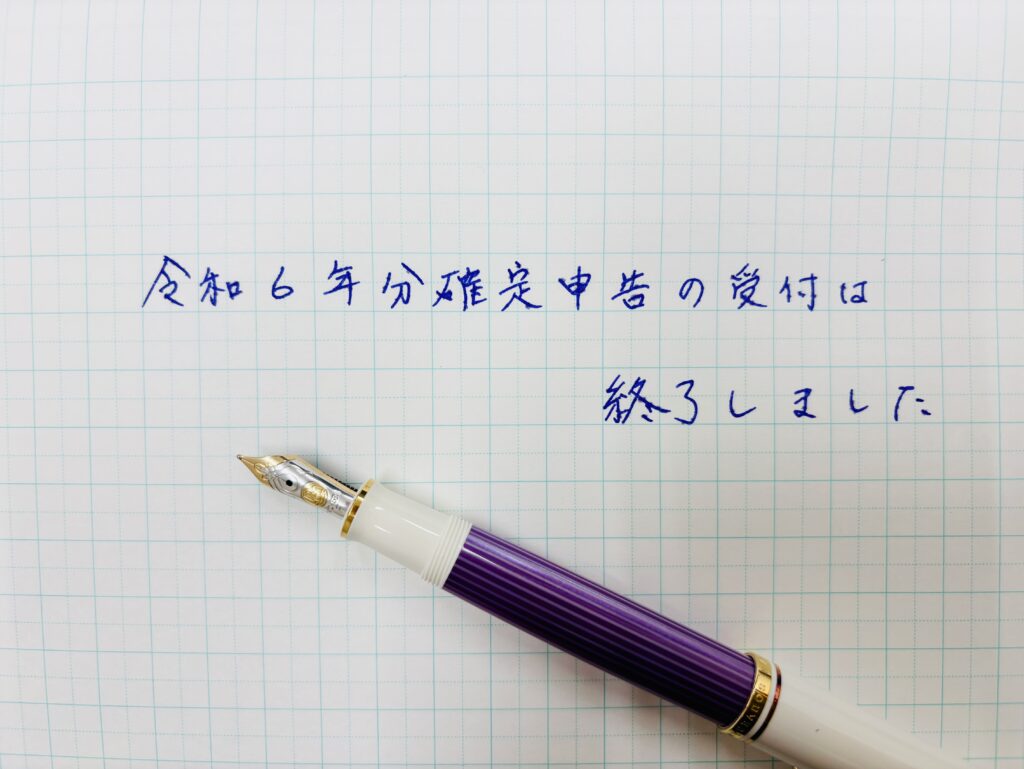 令和6年分確定申告の受付は
終了しました